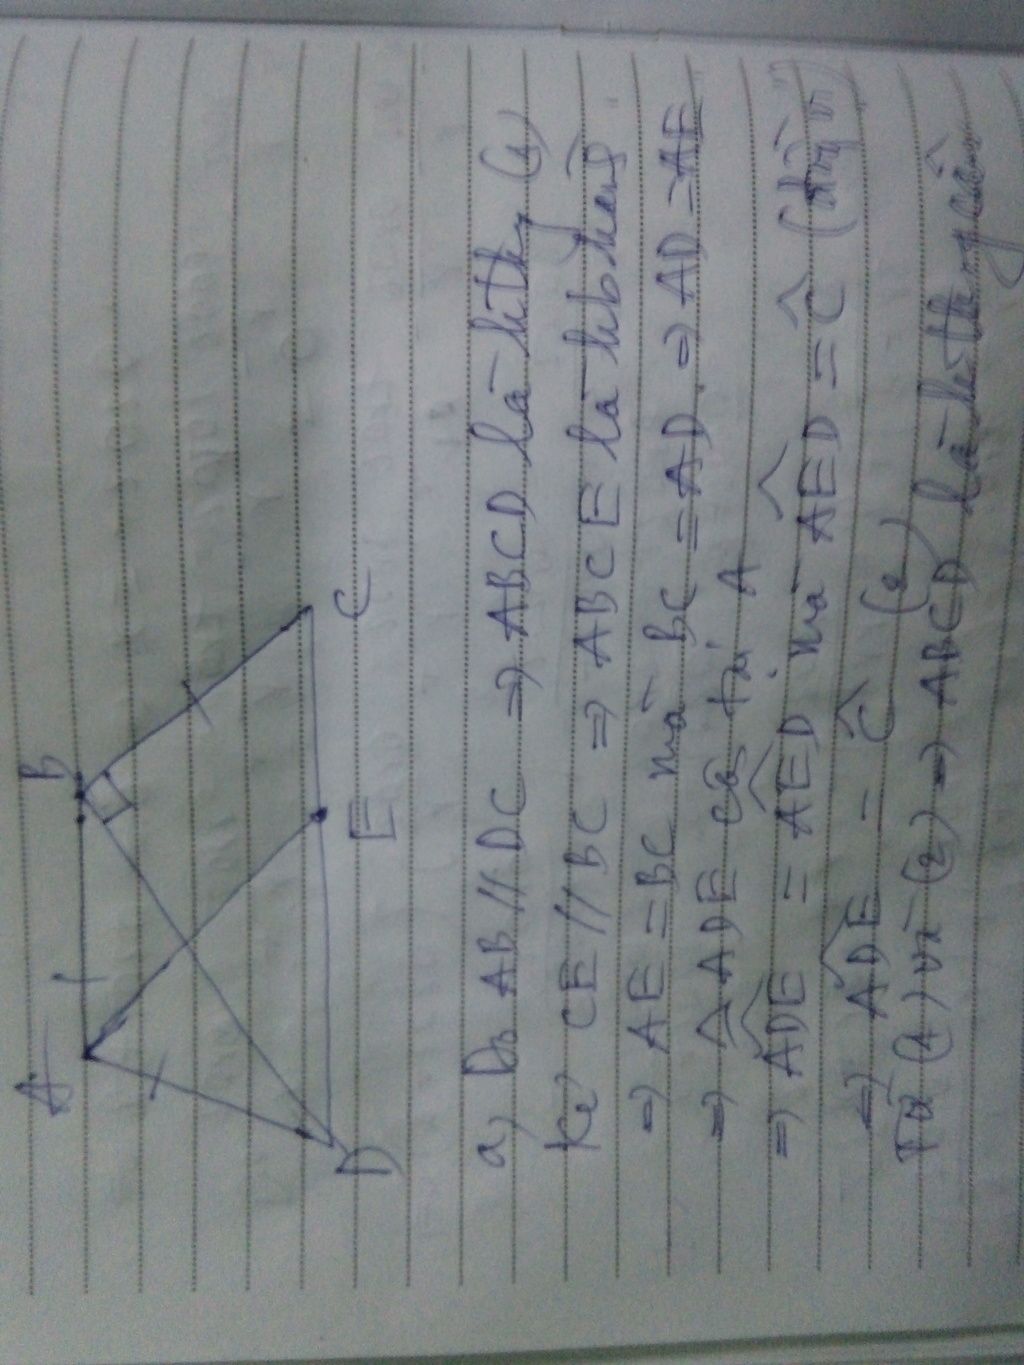 A
B
D
E
C
a, Do AB // DC => ABCD là hthg (1)
Kẻ CE // BC => ABCE là hbhàng
=> AE = BC mà BC = AD => AD = AE
=> △ADE cân tại A
=> ADÊ = AÊD mà AÊD = Ĉ (đồng vị)
=> ADÊ = Ĉ (2)
Từ (1) và (2) => ABCD là hthg cân